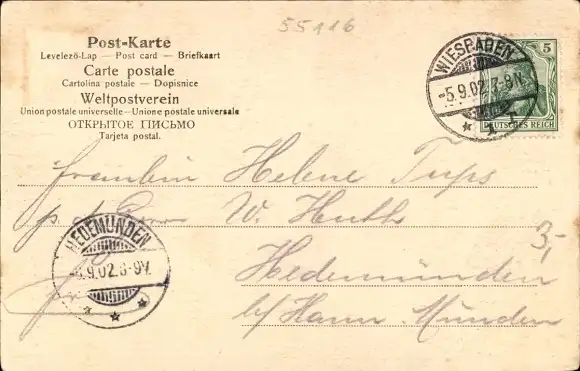 55116
Post-Karte
Levelező-Lap — Post card — Briefkaart
Carte postale
Cartolina postale — Dopisnice
Weltpostverein
Union postale universelle — Unione postale universale
ОТКРЫТОЕ ПИСЬМО
Tarjeta postal.
WIESBADEN
-5.9.02.8-9V.
5
DEUTSCHES REICH
Fräulein Helene Tups
W. Huth
3,-
Hedemünden
b/ Hann. Münden
HEDEMÜNDEN
-6.9.02.8-9V.